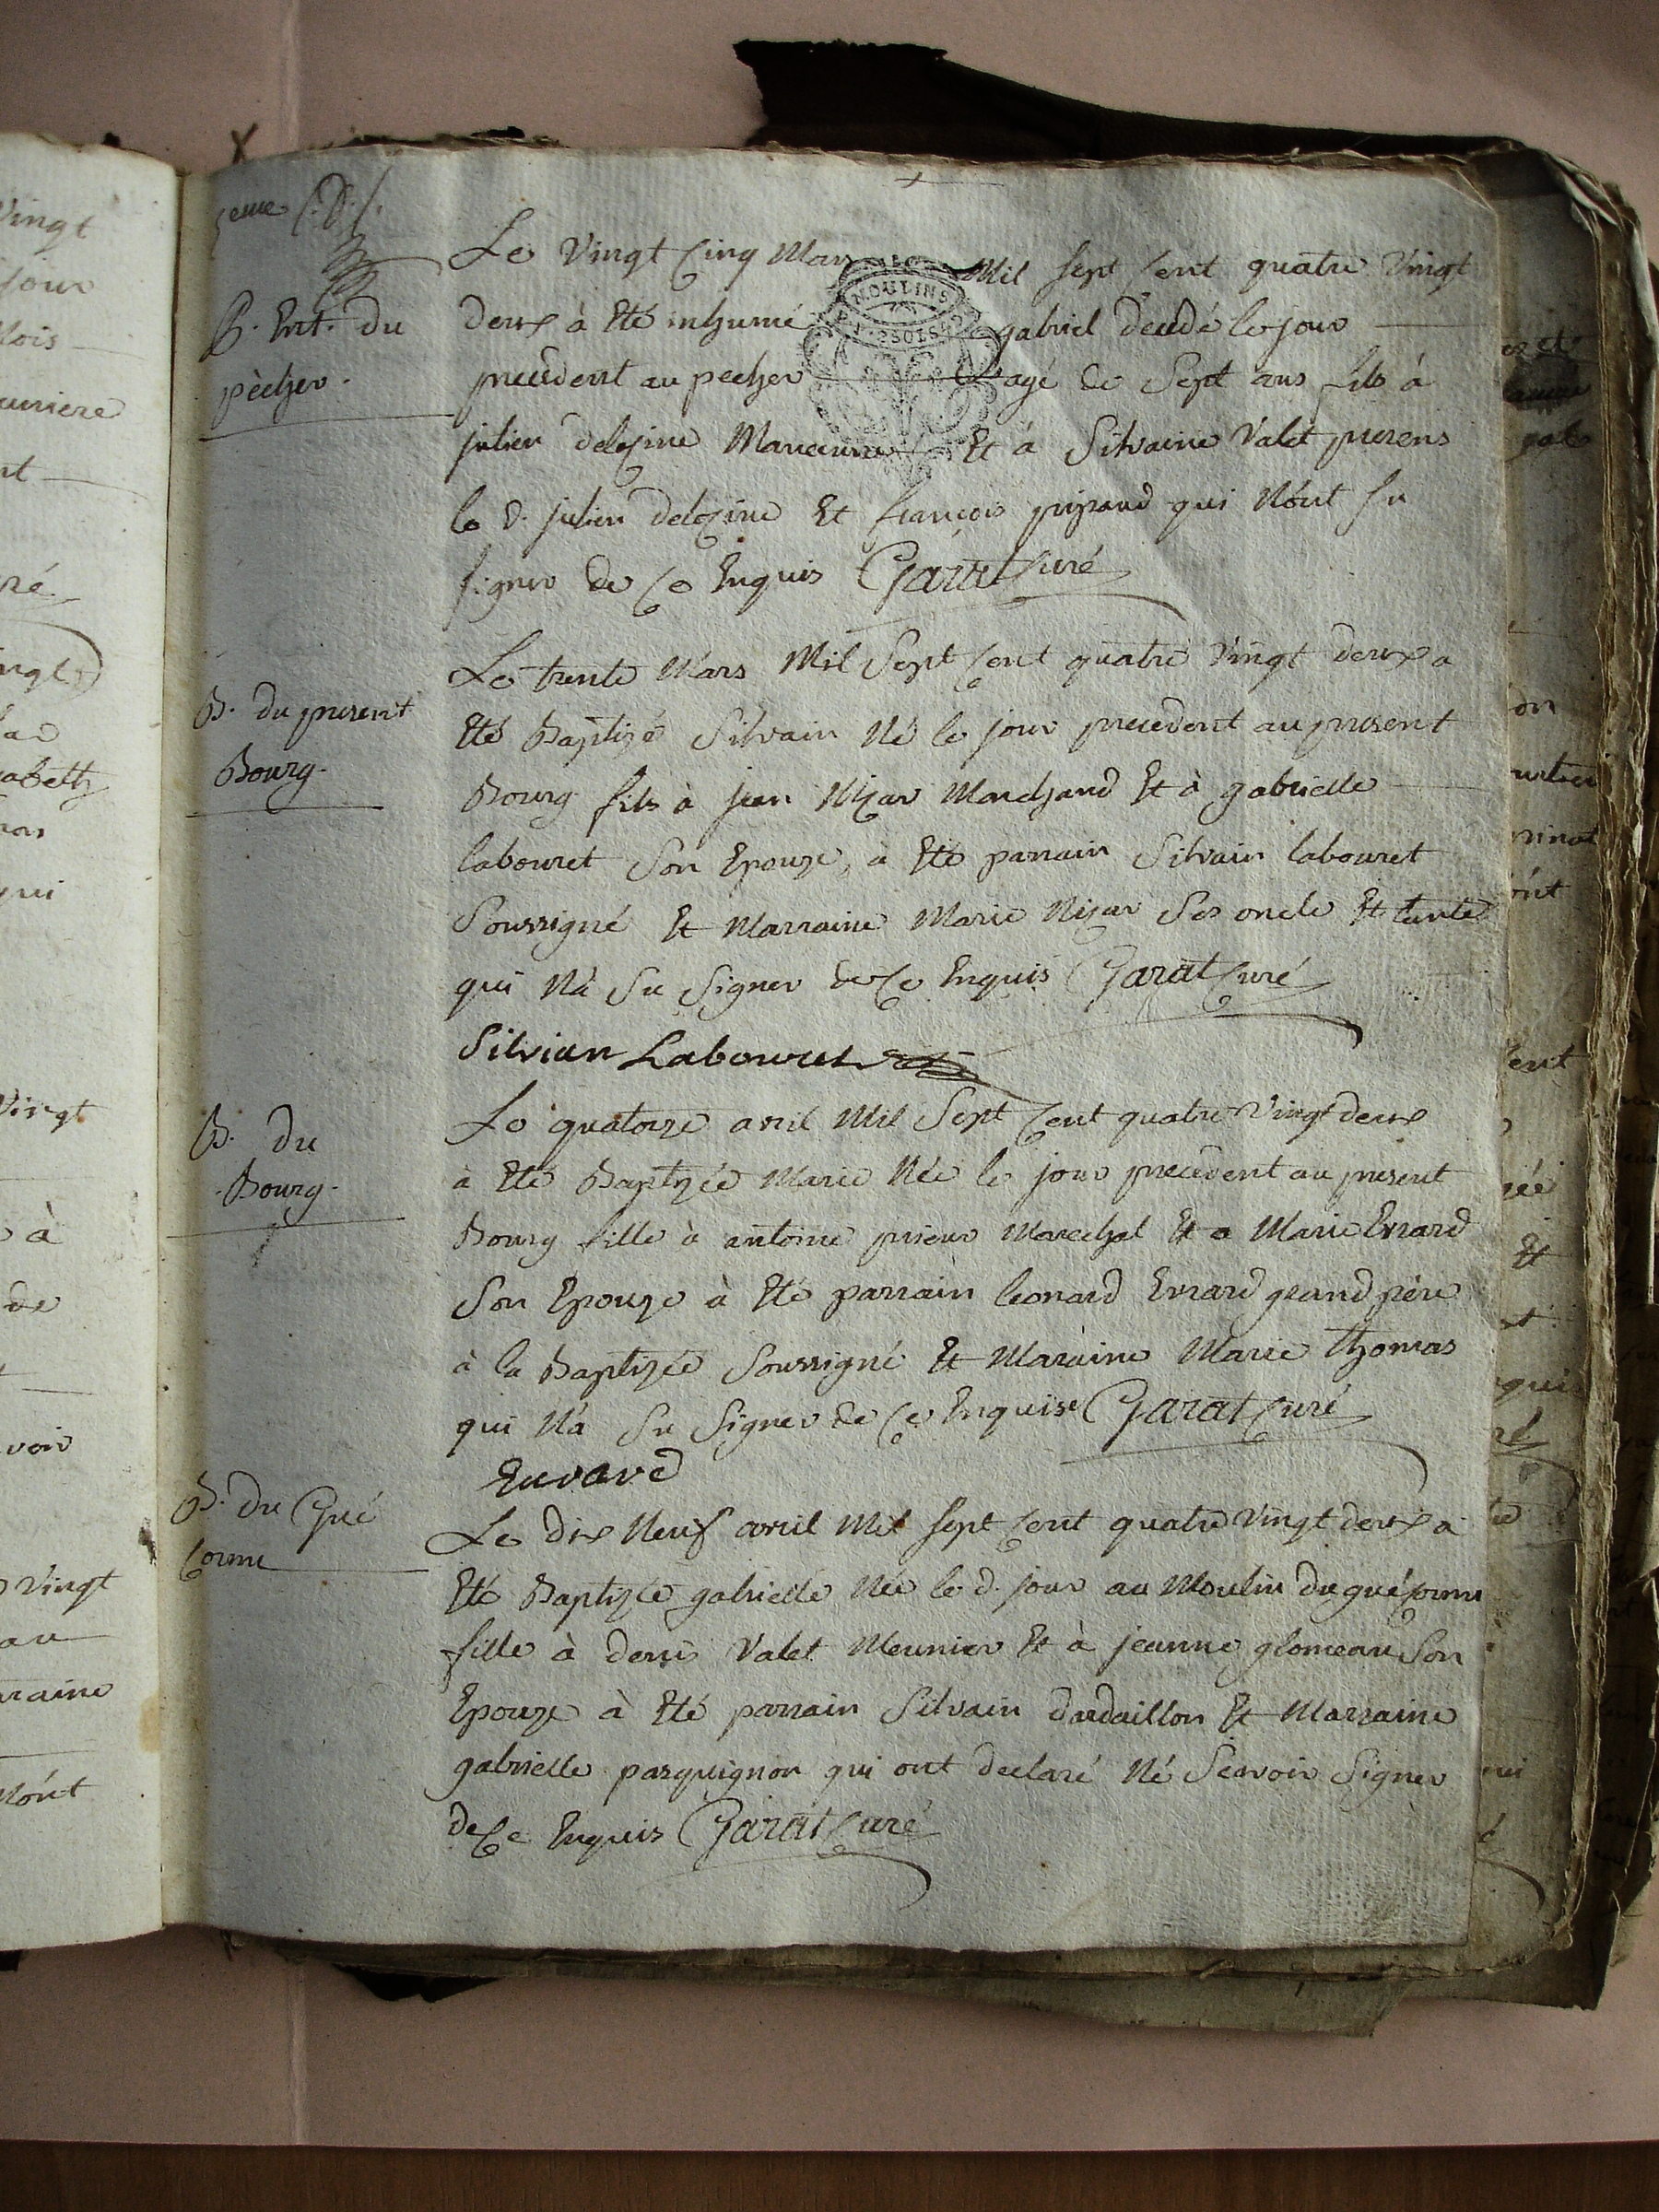 P. Ent. du
pècher.
Le Vingt Cinq Mars Mil Sept Cent quatre Vingt
deux à Eté inhumé gabriel décédé le jour
MOULINS
2 SOLS
precedent au pecher agé de Sept ans fils à
julien delozine Et à Silvaine Valet presens
le d. julien delozine Et françois qui N'ont Su
signer de Ce Enquis Garat Curé
B. du present
Bourg.
Le trente Mars Mil Sept Cent quatre Vingt deux a
Eté Baptizé Silvain Né le jour precedent au present
Bourg fils à jean Marchand Et à gabrielle
labouret Son Epouze, à Eté parrain Silvain labouret
Soussigné Et Marraine Marie Ses oncle Et tante
qui N'a Su Signer de Ce Enquis Garat Curé
Silvian Labouret
B. du
Bourg.
Le quatorze avril Mil Sept Cent quatre Vingt deux
à Eté Baptizée Marie Née le jour precedent au present
Bourg fille à antoine prieur Marechal Et a Marie Evrard
Son Epouze à Eté parrain leonard Evrard grand père
à la Baptizée Soussigné Et Maraine Marie Thomas
qui N'a Su Signer de Ce Enquise Garat Curé
Euvard
B. du Gué
Cornu
Le dix Neuf avril Mil Sept Cent quatre Vingt deux à
Eté Baptizée gabrielle Née le d. jour au Moulin du gué Cornu
fille à denis Valet Meunier Et à jeanne glomeau Son
Epouze à Eté parrain Silvain dardaillon Et Marraine
gabrielle pasquignon qui ont declaré Né Scavoir Signer
de Ce Enquis Garat Curé